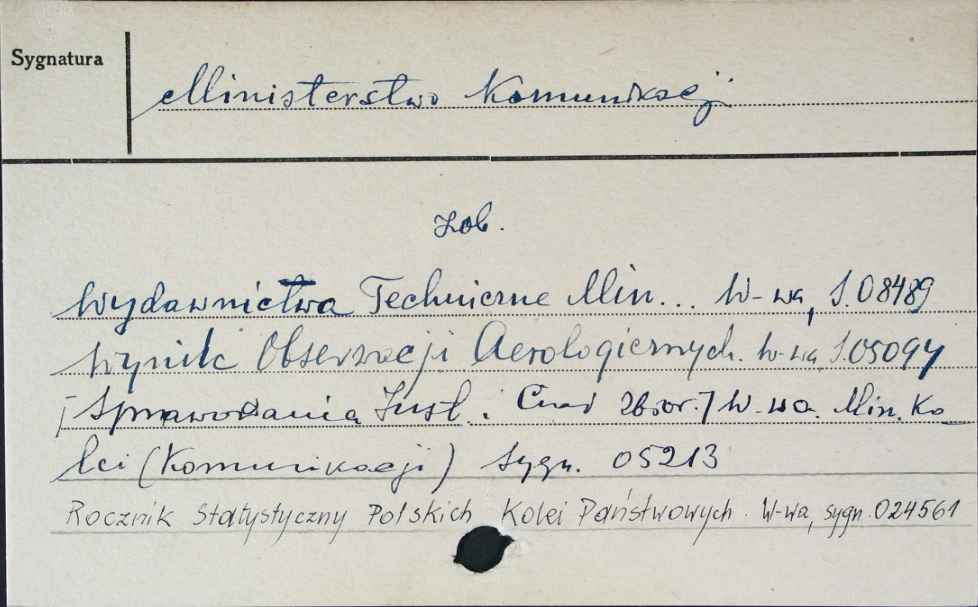 Sygnatura
Ministerstwo Komunikacji
Zob.
Wydawnictwa Techniczne Min... W-wa, S.08489
Wyniki Obserwacji Aerologicznych. W-wa, S.05094
[Sprawozdania Inst. i W-wa. Min. Ko
lei (Komunikacji) sygn. 05213
Rocznik Statystyczny Polskich Kolei Państwowych. W-wa, sygn. 024561